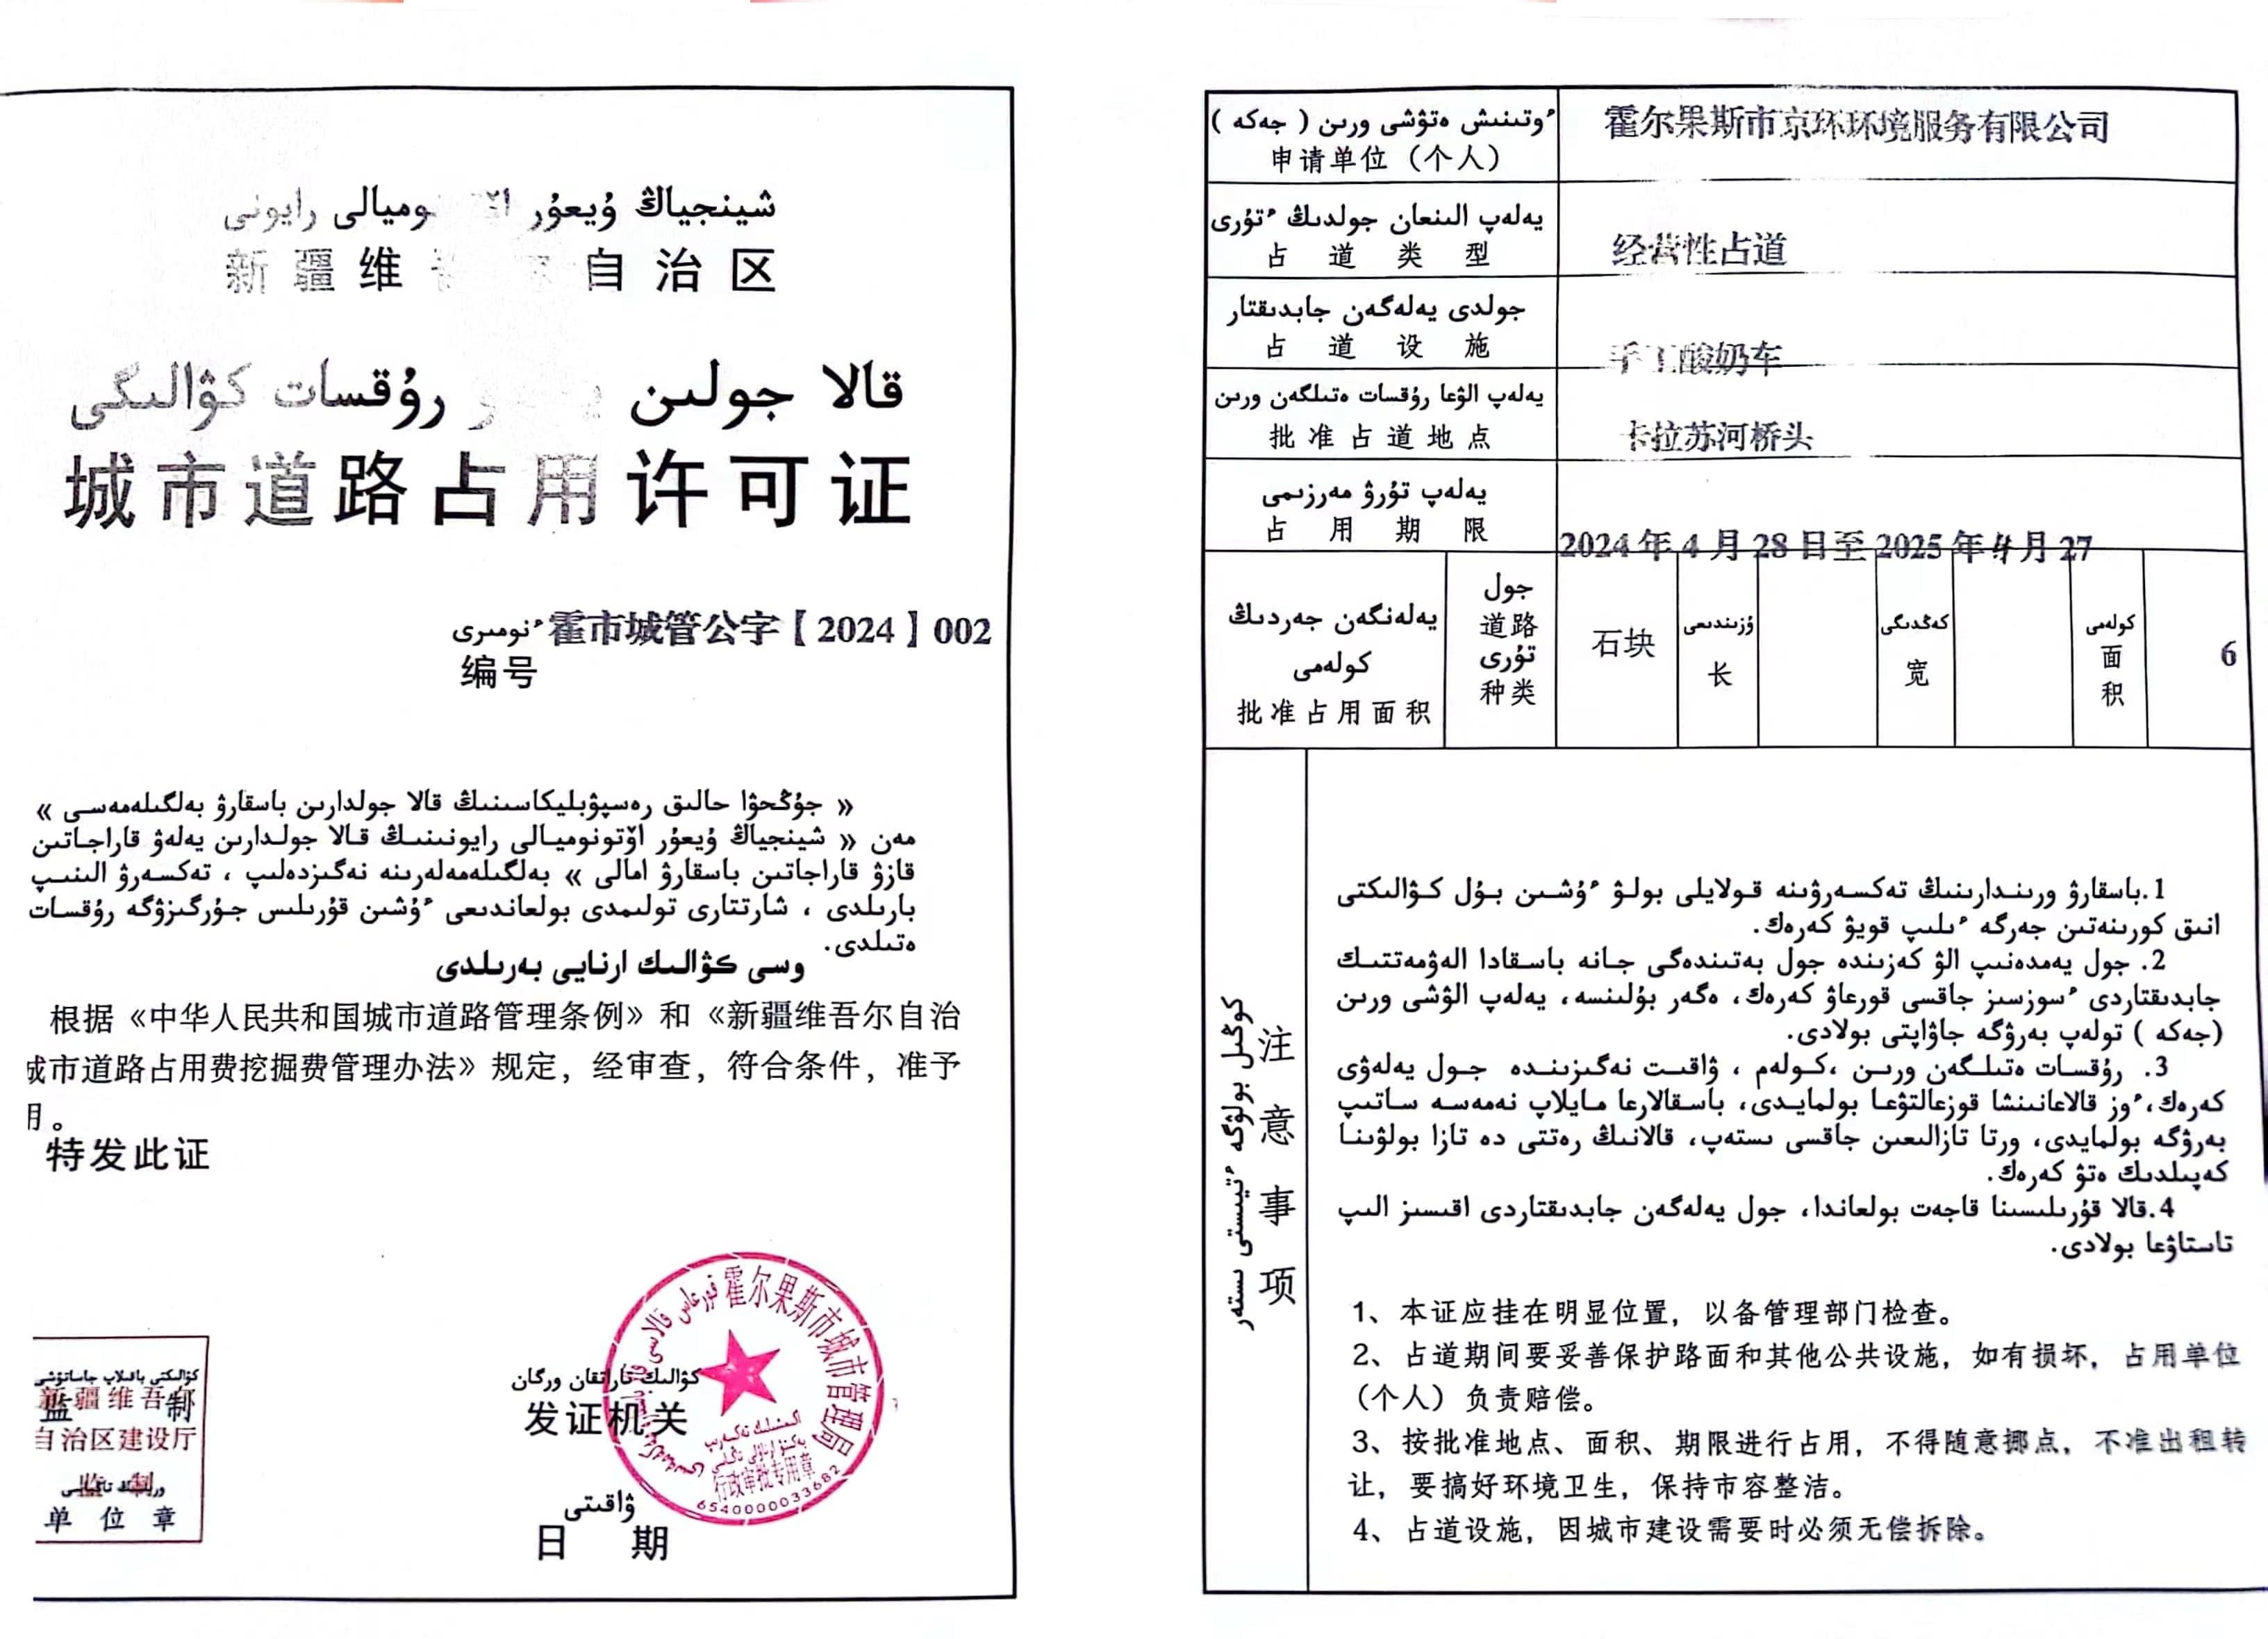 شينجياڭ ۇيعۇر وميالى رايونى
新疆维 自治区
قالا جولىن رۇقسات كۋالىگى
城市道路占用许可证
ٴنومىرى 霍市城管公字【2024】002
编号
« جۇڭحۋا حالىق رەسپۋبليكاسىنىڭ قالا جولدارىن باسقارۋ بەلگىلەمەسى »
مەن « شينجياڭ ۇيعۇر اۆتونوميالى رايونىنىڭ قالا جولدارىن يەلەۋ قاراجاتىن
قازۋ قاراجاتىن باسقارۋ امالى » بەلگىلەمەلەرىنە نەگىزدەلىپ ، تەكسەرۋ الىنىپ
بارىلدى ، شارتتارى تولىمدى بولعاندىعى ٴۇشىن قۇرىلىس جۇرگىزۋگە رۇقسات
ەتىلدى.
وسى كۋالىك ارنايى بەرىلدى
根据《中华人民共和国城市道路管理条例》和《新疆维吾尔自治
城市道路占用费挖掘费管理办法》规定，经审查，符合条件，准予
用。
特发此证
كۋالىكتى باقىلاپ جاساتۋشى
监 制
新疆维吾尔
自治区建设厅
监 制
ورىننىڭ تاڭباسى
单 位 章
كۋالىك تاراتقان ورگان
发证机关
ۋاقىتى
日 期
قورعاس قالاسى
霍尔果斯市城市管理局
行政审批专用章
6540000033682
ٴوتىنىش ەتۋشى ورىن ( جەكە )
申请单位（个人）
霍尔果斯市京环环境服务有限公司
يەلەپ الىنعان جولدىڭ ٴتۇرى
占 道 类 型
经营性占道
جولدى يەلەگەن جابدىقتار
占 道 设 施
手工酸奶车
يەلەپ الۋعا رۇقسات ەتىلگەن ورىن
批准占道地点
卡拉苏河桥头
يەلەپ تۇرۋ مەرزىمى
占 用 期 限
2024年4月28日至2025年4月27
يەلەنگەن جەردىڭ
كولەمى
批准占用面积
جول
道路
تۇرى
种类
石块
ۇزىندىعى
长
كەڭدىگى
宽
كولەمى
面
积
6
كوڭىل بولۋگە ٴتيىستى ىستەر
注意事项
1.باسقارۋ ورىندارىنىڭ تەكسەرۋىنە قولايلى بولۋ ٴۇشىن بۇل كۋالىكتى
انىق كورىنەتىن جەرگە ٴىلىپ قويۋ كەرەك.
2. جول يەمدەنىپ الۋ كەزىندە جول بەتىندەگى جانە باسقادا الەۋمەتتىك
جابدىقتاردى ٴسوزسىز جاقسى قورعاۋ كەرەك، ەگەر بۇلىنسە، يەلەپ الۋشى ورىن
(جەكە ) تولەپ بەرۋگە جاۋاپتى بولادى.
3. رۇقسات ەتىلگەن ورىن ،كولەم ، ۋاقىت نەگىزىندە جول يەلەۋى
كەرەك،ٴوز قالاعانىنشا قوزعالتۋعا بولمايدى، باسقالارعا مايلاپ نەمەسە ساتىپ
بەرۋگە بولمايدى، ورتا تازالىعىن جاقسى ىستەپ، قالانىڭ رەتتى دە تازا بولۋىنا
كەپىلدىك ەتۋ كەرەك.
4.قالا قۇرىلىسىنا قاجەت بولعاندا، جول يەلەگەن جابدىقتاردى اقىسىز الىپ
تاستاۋعا بولادى.
1、本证应挂在明显位置，以备管理部门检查。
2、占道期间要妥善保护路面和其他公共设施，如有损坏，占用单位
（个人）负责赔偿。
3、按批准地点、面积、期限进行占用，不得随意挪点，不准出租转
让，要搞好环境卫生，保持市容整洁。
4、占道设施，因城市建设需要时必须无偿拆除。